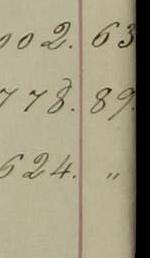 002. 63
778. 89.
624. "